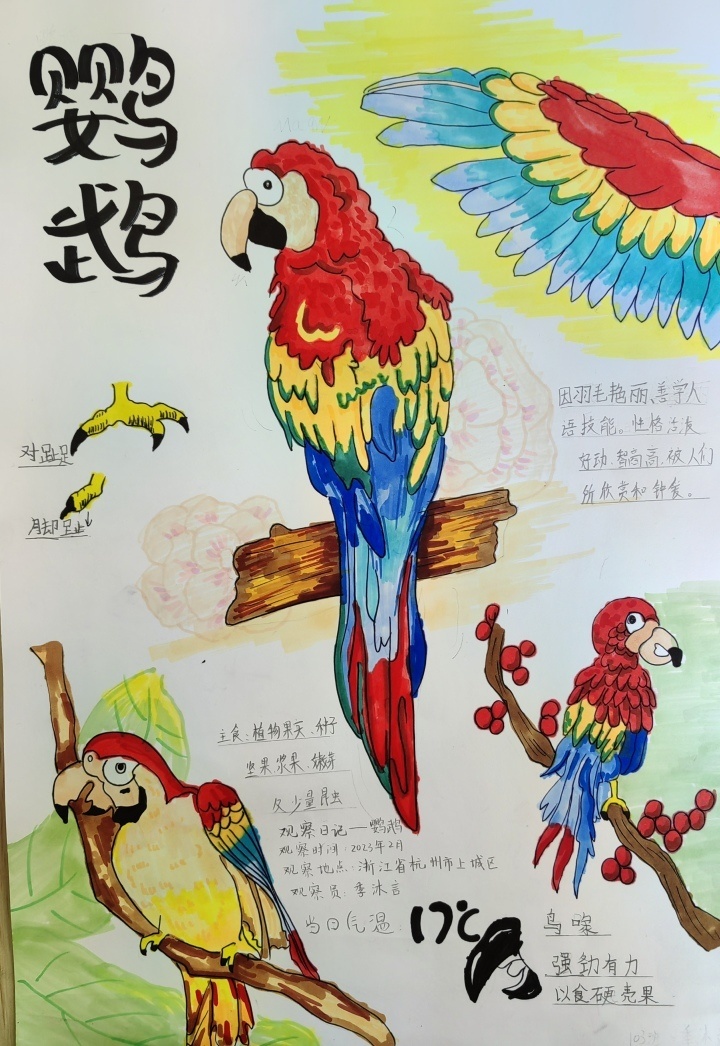 鹦
鹉
因羽毛艳丽、善学人
语技能。性格活泼
好动、智商高,被人们
所欣赏和钟爱。
对趾足
脚趾
主食:植物果实、种子
坚果、浆果、嫩芽
及少量昆虫
观察日记——鹦鹉
观察时间:2023年2月
观察地点:浙江省杭州市上城区
观察员:李沐言
当日气温:17℃
鸟喙
强劲有力
以食硬壳果